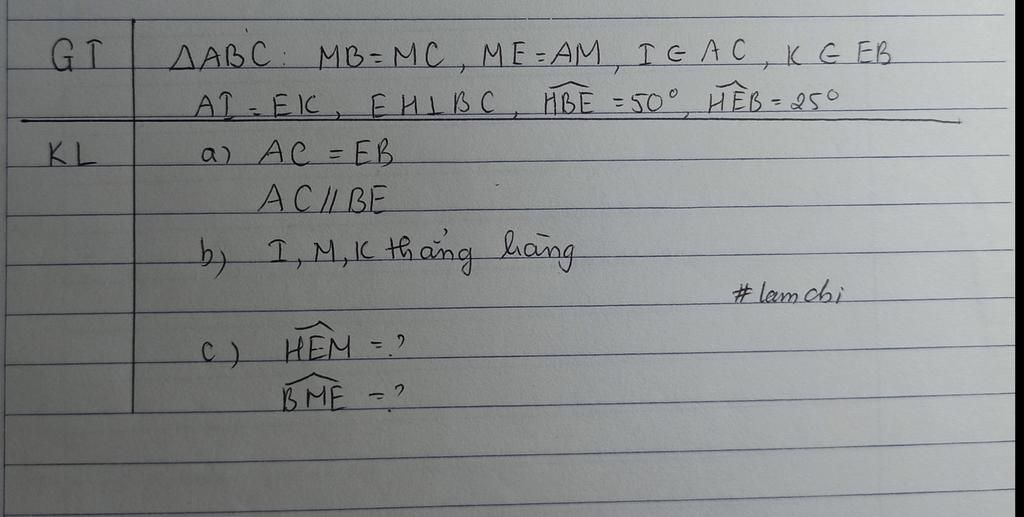 GT ΔABC: MB=MC, ME=AM, I∈AC, K∈EB
AI=EK, EH⊥BC, \widehat{HBE}=50°, \widehat{HEB}=25°
KL a) AC=EB
AC//BE
b) I, M, K thẳng hàng
#lamchi
c) \widehat{HEM}=?
\widehat{BME}=?